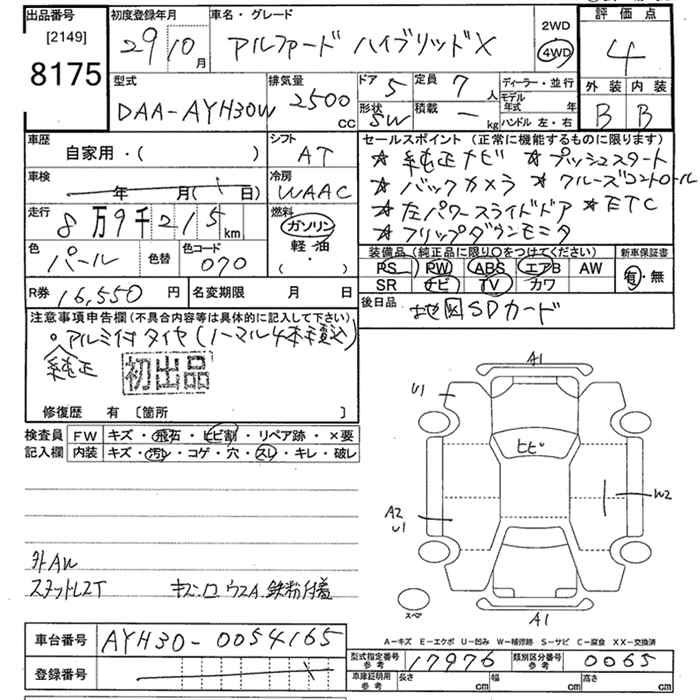 出品番号 初度登録年月 車名・グレード 評価点
[2149] 29 10月 アルファード ハイブリッドX 2WD 4WD 4
8175
型式 排気量 ドア 5 定員 7人 ディーラー・並行 外装 内装
DAA-AYH30W 2500cc 形状 SW 積載 ー kg モデル年式 年 B B
ハンドル 左・右
車歴 シフト セールスポイント (正常に機能するものに限ります)
自家用・( ) AT ☆ 純正ナビ ☆ プッシュスタート
車検 冷房 ☆ バックカメラ ☆ クルーズコントロール
年 月( 日) WAAC ☆ 左パワースライドドア ☆ ETC
走行 燃料 ☆ フリップダウンモニタ
8万9千215km ガソリン
色 パール 色替 色コード 070 軽・油 ( ・ )
装備品 (純正品に限り〇をつけてください) 新車保証書
PS PW ABS エアB AW 有・無
SR ナビ TV カワ
R券 16,550円 名変期限 月 日 後日品 地図SDカード
注意事項申告欄(不具合内容等は具体的に記入して下さい)
。アルミ付タイヤ(ノーマル4本積込)
純正 初出品
修復歴 有 〔箇所 〕
検査員 FW キズ・飛石・ヒビ割・リペア跡・×要
記入欄 内装 キズ・汚レ・コゲ・穴・スレ・キレ・破レ
A1
U1
ヒビ
W2
A2
U1
外AW
スタッドレスT キズ小 ウスA 鉄粉付着
スペア
A1
A-キズ E-エクボ U-凹み W-補修跡 S-サビ C-腐食 XX-交換済
車台番号 AYH30-0054165
型式指定番号 参考 17976 類別区分番号 参考 0065
登録番号
車庫証明用 参考 長さ cm 幅 cm 高さ cm